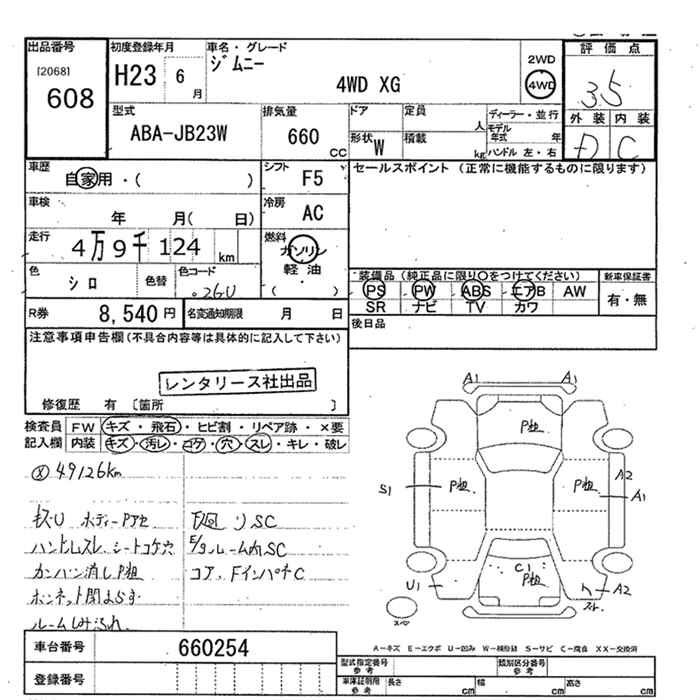 出品番号
[2068]
608
初度登録年月
H23 6月
車名・グレード
ジムニー
4WD XG
2WD
4WD
評価点
3.5
外装 内装
D C
型式
ABA-JB23W
排気量
660 CC
ドア
定員
人
形状 W
積載
kg
ディーラー・並行
モデル年式 年
ハンドル 左・右
車歴
自家用・( )
シフト
F5
セールスポイント (正常に機能するものに限ります)
車検
年 月( 日)
冷房
AC
走行
4万9千124 km
燃料
ガソリン
軽油
( ・ )
色
シロ
色替
色コード
26U
装備品 (純正品に限り○をつけてください)
PS PW ABS エアB AW
SR ナビ TV カワ
新車保証書
有・無
R券
8,540 円
名変通知期限 月 日
後日品
注意事項申告欄 (不具合内容等は具体的に記入して下さい)
レンタリース社出品
修復歴 有 [箇所 ]
検査員記入欄
FW キズ・飛石・ヒビ割・リペア跡・×要
内装 キズ・汚レ・コゲ・穴・スレ・キレ・破レ
49126km
キズU ボディーP粗
下廻りSC
ハンドルスレ、シートコゲ穴
E/gルーム内SC
カンバン消しP粗
コア、FインパチC
ボンネット閉まらず
ルームしみ汚れ
A1 A1
P粗
S1 P粗 P粗 A2
A1
C1
P粗
U1 A2
スペア
A-キズ E-エクボ U-凹み W-補修跡 S-サビ C-腐食 XX-交換済
車台番号
660254
登録番号
型式指定番号 参考
類別区分番号 参考
車庫証明用 参考
長さ cm 幅 cm 高さ cm